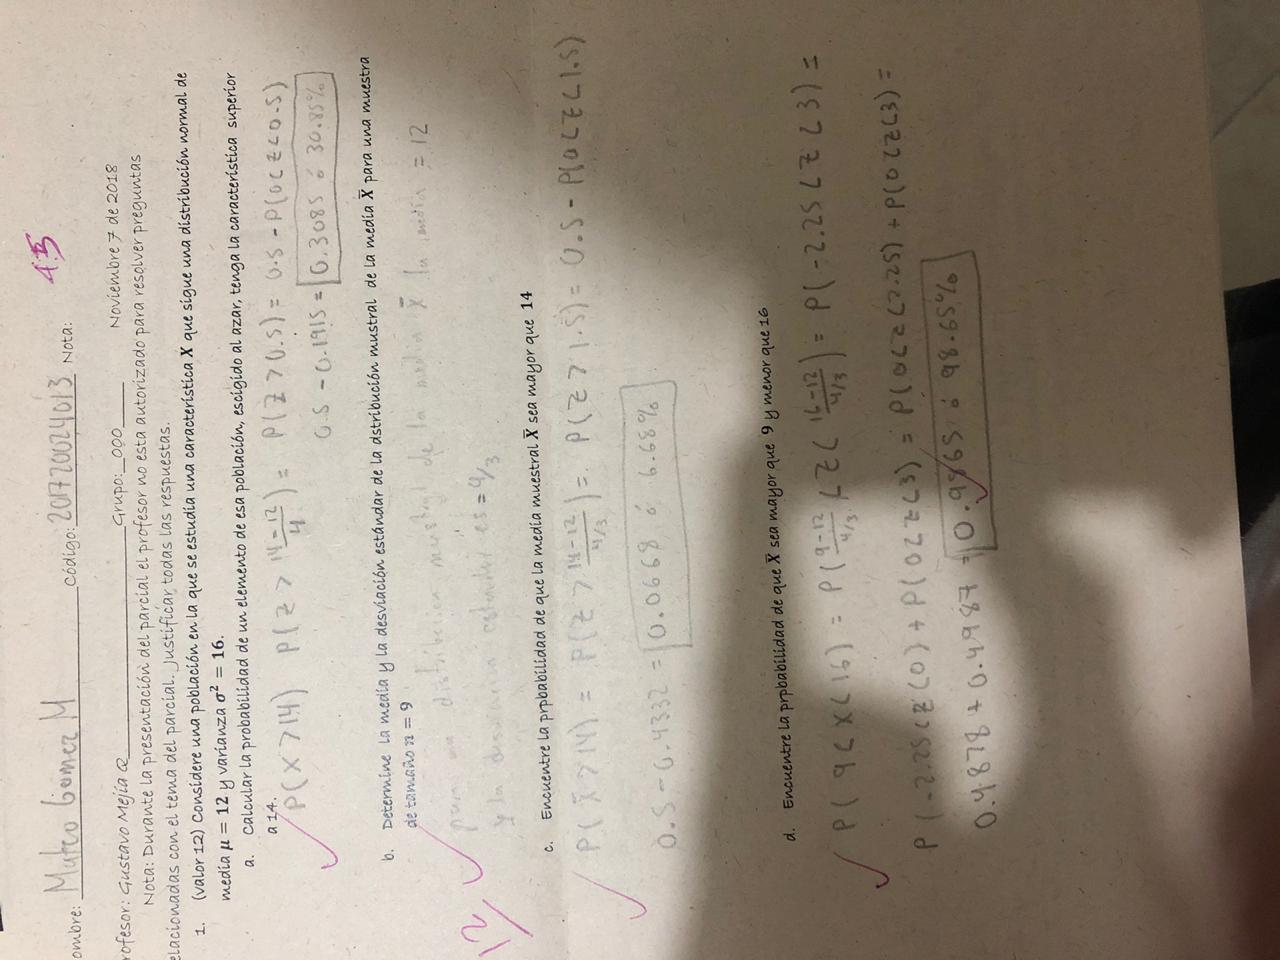 ombre: Mateo Gómez M código: 201720024013 Nota: 4.5
rofesor: Gustavo Mejía Q Grupo:_000 Noviembre 7 de 2018
Nota: Durante la presentación del parcial el profesor no esta autorizado para resolver preguntas
elacionadas con el tema del parcial. Justificar todas las respuestas.
1. (valor 12) Considere una población en la que se estudia una característica X que sigue una distribución normal de
media μ = 12 y varianza σ² = 16.
a. calcular la probabilidad de un elemento de esa población, escigido al azar, tenga la característica superior
a 14.
P(X>14) P(Z > 14-12/4) = P(Z>0.5) = 0.5 - P(0<Z<0.5)
0.5 - 0.1915 = 0.3085 ó 30.85%
b. Determine la media y la desviación estándar de la dstribución mustral de la media X̄ para una muestra
de tamaño n = 9
para una distribución muestral de la media X̄ la media = 12
y la desviación estandar es = 4/3
12/
c. Encuentre la prpbabilidad de que la media muestral X̄ sea mayor que 14
P(X̄>14) = P(Z > 14-12/4/3) = P(Z > 1.5) = 0.5 - P(0<Z<1.5)
0.5 - 0.4332 = 0.0668 ó 6.68%
d. Encuentre la prpbabilidad de que X̄ sea mayor que 9 y menor que 16
P(9<X<16) = P(9-12/4/3 < Z < 16-12/4/3) = P(-2.25<Z<3) =
P(-2.25<Z<0) + P(0<Z<3) = P(0<Z<2.25) + P(0<Z<3) =
0.4878 + 0.4987 = 0.9865 ó 98.65%